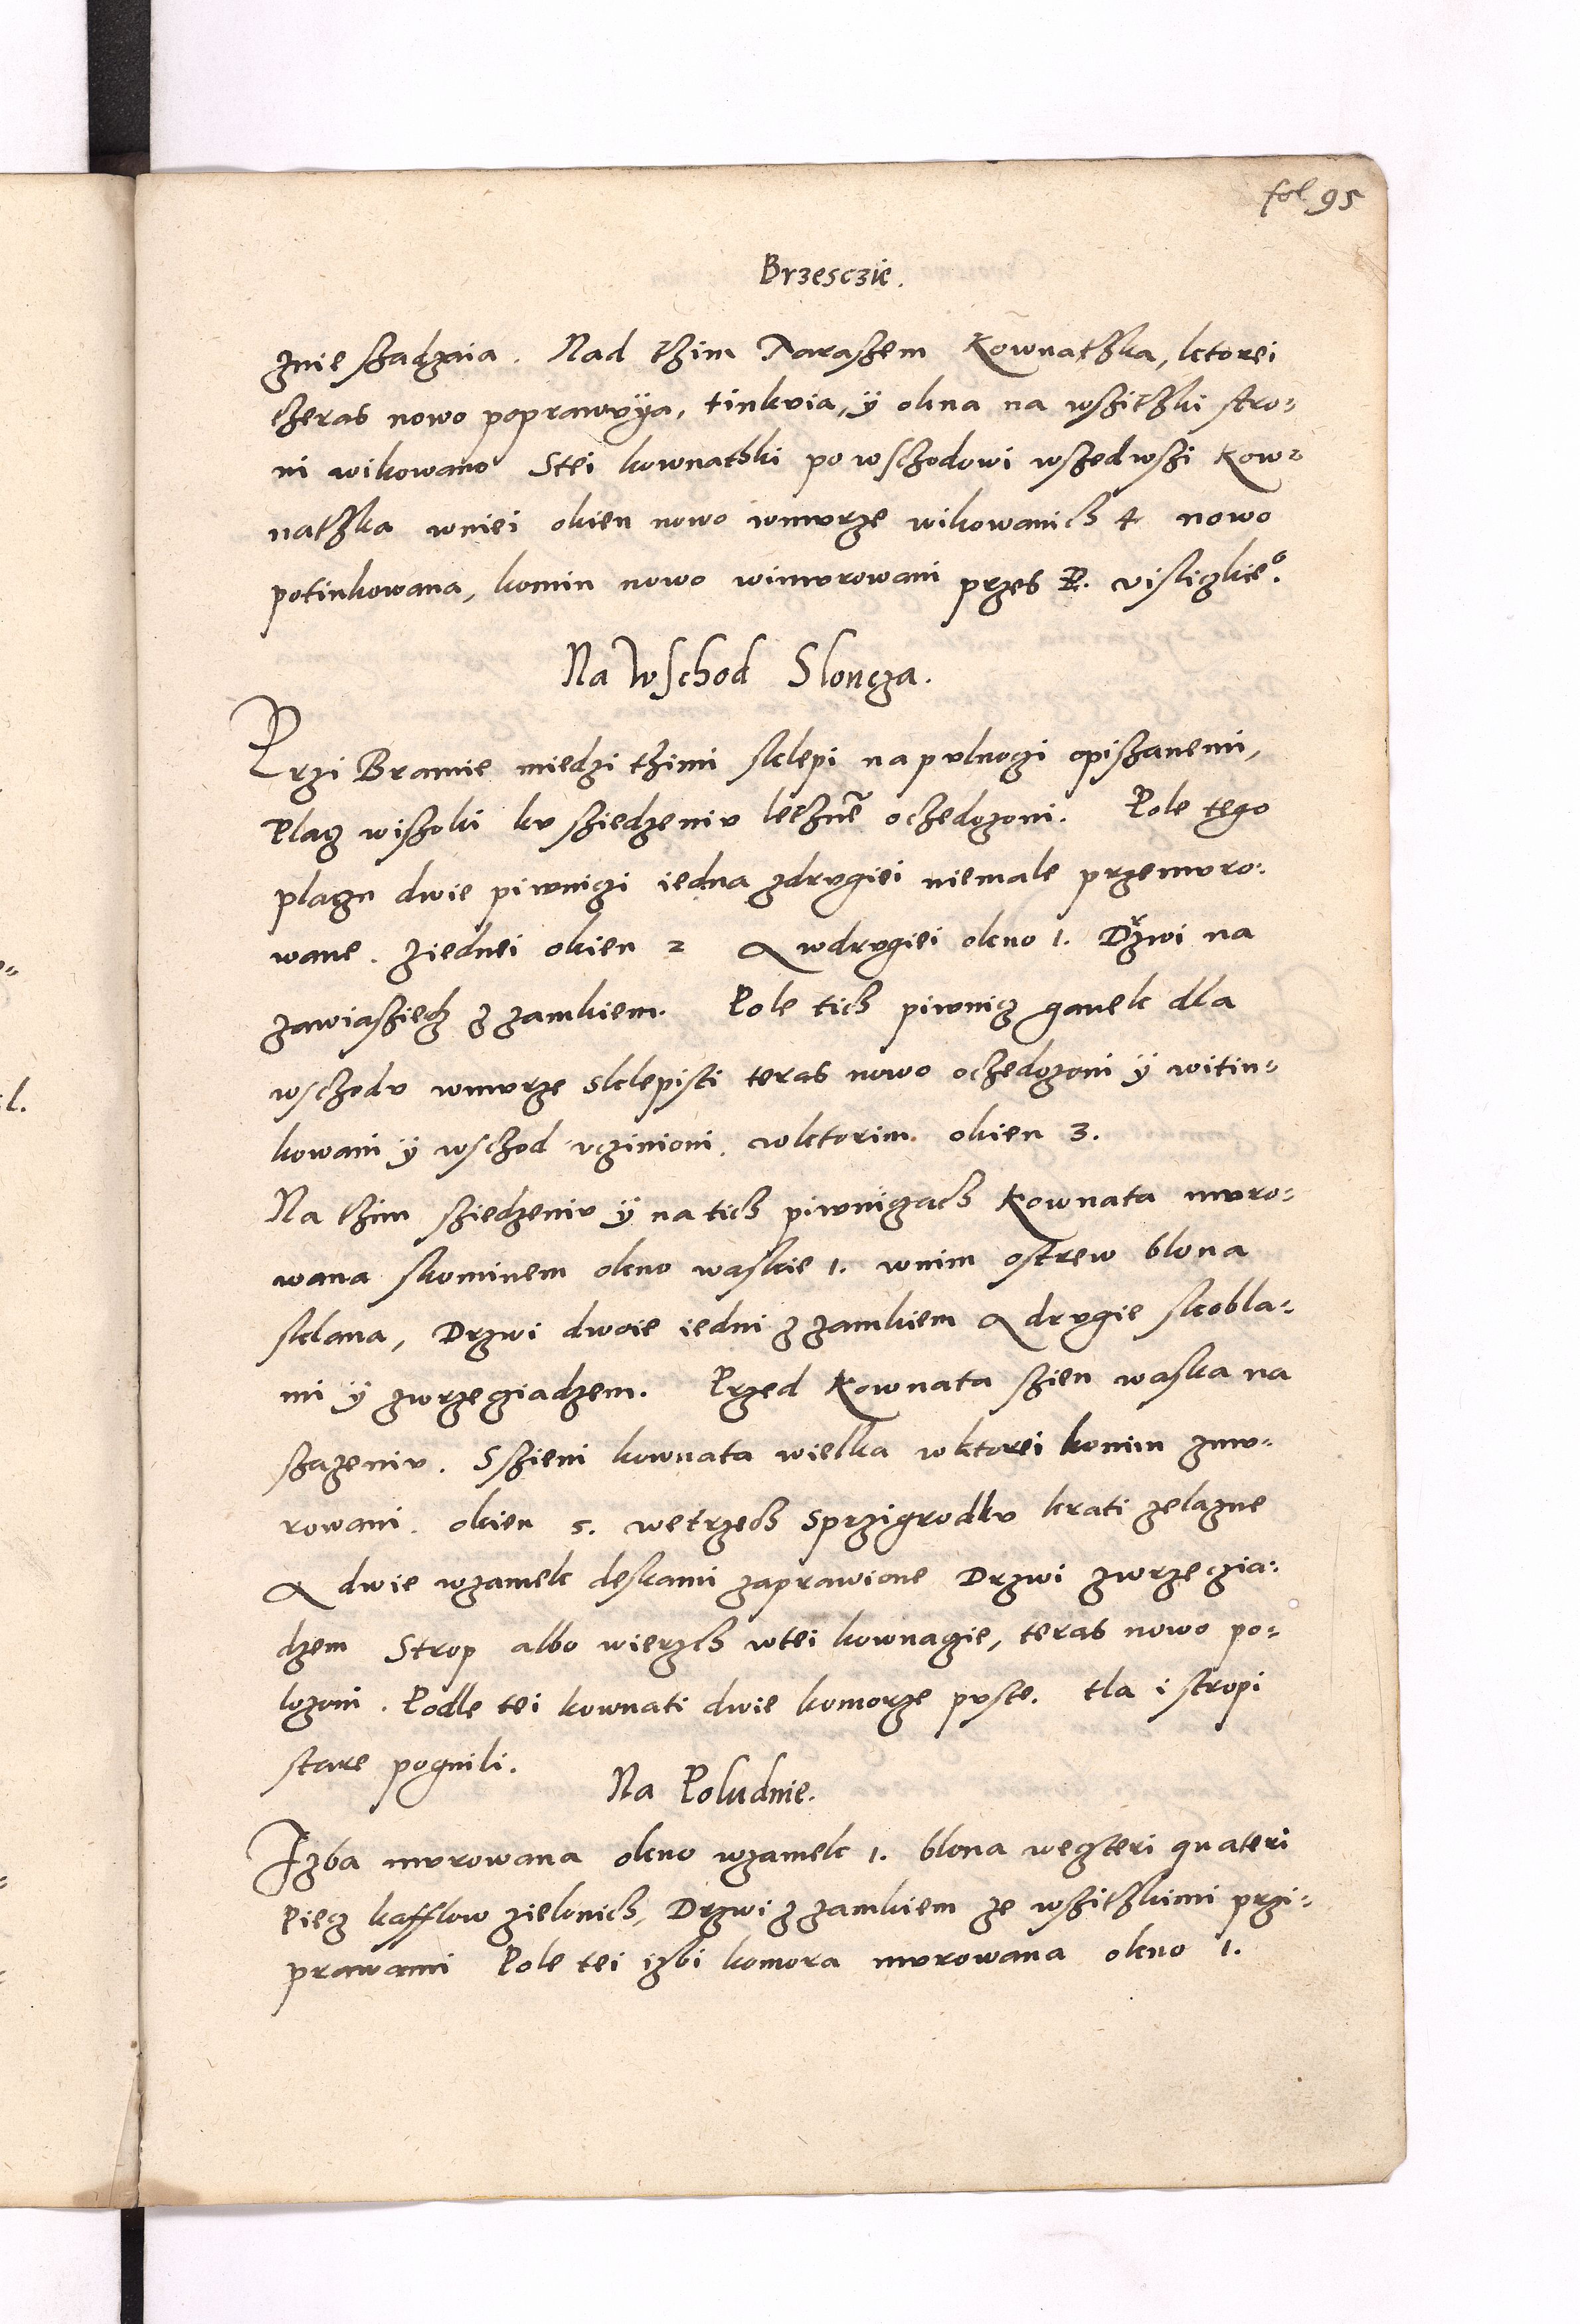 fol 95
Brzesczie.
znie szadzaia. Nad thim Taraszem Kownatzka, ktorei
theras nowo poprawuya, tinkuia, y okna na wszitzki stro=
ni wikowano Stei kownatski po wschodowi wszedwszi Kow=
natzka wniei okien nowo wmurze wikowanich 4 nowo
potinkowana, komin nowo wimurowani przes P. visliczkieo.
Na Wschod Sloncza.
Przi Bramie miedzi thimi sklepi napulnozi opiszanemi,
Placz wiszoki ku sziedzeniu letzne ochedozoni. Pole tego
placzu dwie piwniczi iedna zdrugiei niemale przemuro=
wane. ziednei okien 2 A wdrugiei okno 1. Drzwi na
zawiasziech z zamkiem. Pole tich piwnicz ganek dla
wschodu wmurze sklepisti teras nowo ochedozoni y witin=
kowani y wschod uczinioni, wktorim okien 3.
Na thim sziedzeniu y na tich piwniczach Kownata muro=
wana skominem okno waskie 1. wnim ostrew blona
sklana, Drzwi dwoie iedni z zamkiem A drugie skobla=
mi y zwrzecziadzem. Przed Kownata szien waska na
szazeniu. Sszieni kownata wielka wktorei komin zmu=
rowani. okien 5. wetrzech Sprzigrodku krati zelazne
A dwie wzamek deskami zaprawione Drzwi zwrzeczia=
dzem Strop albo wierzch wtei kownacie, teras nowo po=
lozoni. Podle tei kownati dwie komorze puste. tla i stropi
stare pognili.
Na Poludnie.
Izba murowana okno wzamek 1. blona weczteri quateri
Piecz kafflow zielonich, Drzwi z zamkiem ze wszitzkimi przi=
prawami Pole tei izbi komora murowana okno 1.